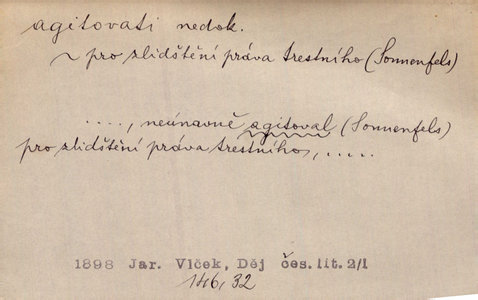 agitovati nedok.
~ pro zlidštění práva trestního (Sonnenfels)
...., neúnavně agitoval (Sonnenfels)
pro zlidštění práva trestního, .....
1898 Jar. Vlček, Děj čes. lit. 2/1
146, 32